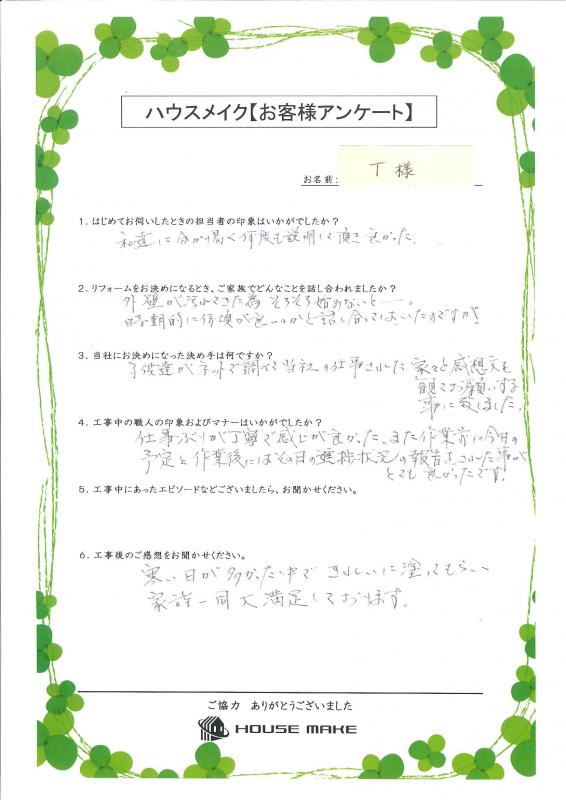 ハウスメイク【お客様アンケート】
お名前: T 様
1. はじめてお伺いしたときの担当者の印象はいかがでしたか?
私達に分か易く何度も説明して頂き良かった。
2. リフォームをお決めになるとき、ご家族でどんなことを話し合われましたか?
外壁が汚れてきた為そろそろ始めないとー。
時期的に何頃が良いのかと話し合ってはいたのですが!
3. 当社にお決めになった決め手は何ですか?
子供達がネットで調べて当社の仕事された家々と感想文を
観てお願いする
事に致しました。
4. 工事中の職人の印象およびマナーはいかがでしたか?
仕事ぶりが丁寧で感じが良かった。また作業前に今日の
予定と作業後にはその日の進捗状況の報告をされた事が
とても良かったです。
5. 工事中にあったエピソードなどございましたら、お聞かせください。
6. 工事後のご感想をお聞かせください。
寒い日が多かった中できれいに塗ってもらい
家族一同大満足しております。
ご協力 ありがとうございました
HOUSE MAKE